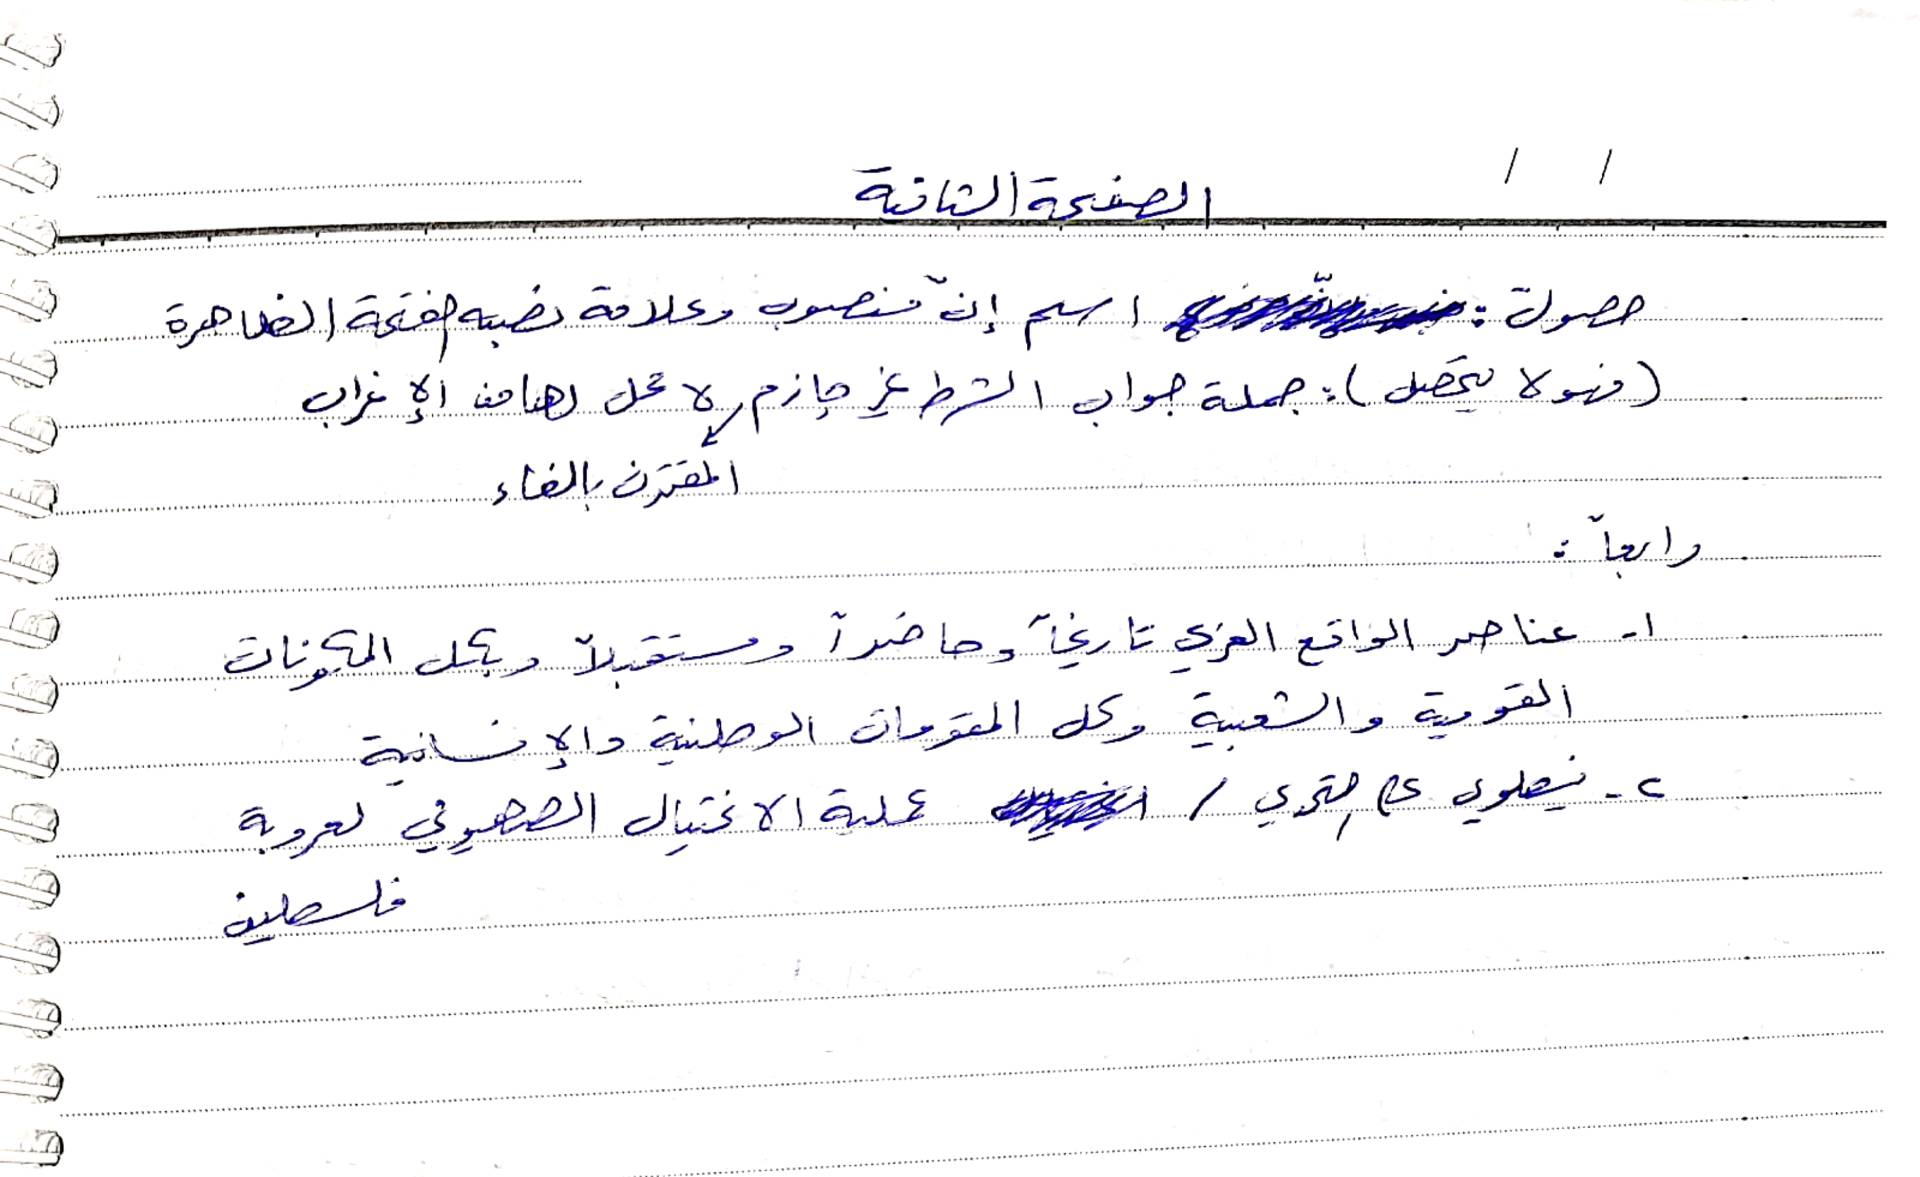 الصفحة الثانية
/ /
حصول: اسم إنّ منصوب وعلامة نصبه الفتحة الظاهرة
(فهو لا يحصل): جملة جواب الشرط غير جازم لا محل لها من الإعراب
المقترن بالفاء
رابعاً:
١- عناصر الواقع العربي تاريخاً وحاضراً ومستقبلاً وبكل المكونات
القومية والشعبية وكل المقومات الوطنية والإنسانية
٢- ينطوي على التحدي / عملية الاغتيال الصهيوني لعروبة
فلسطين